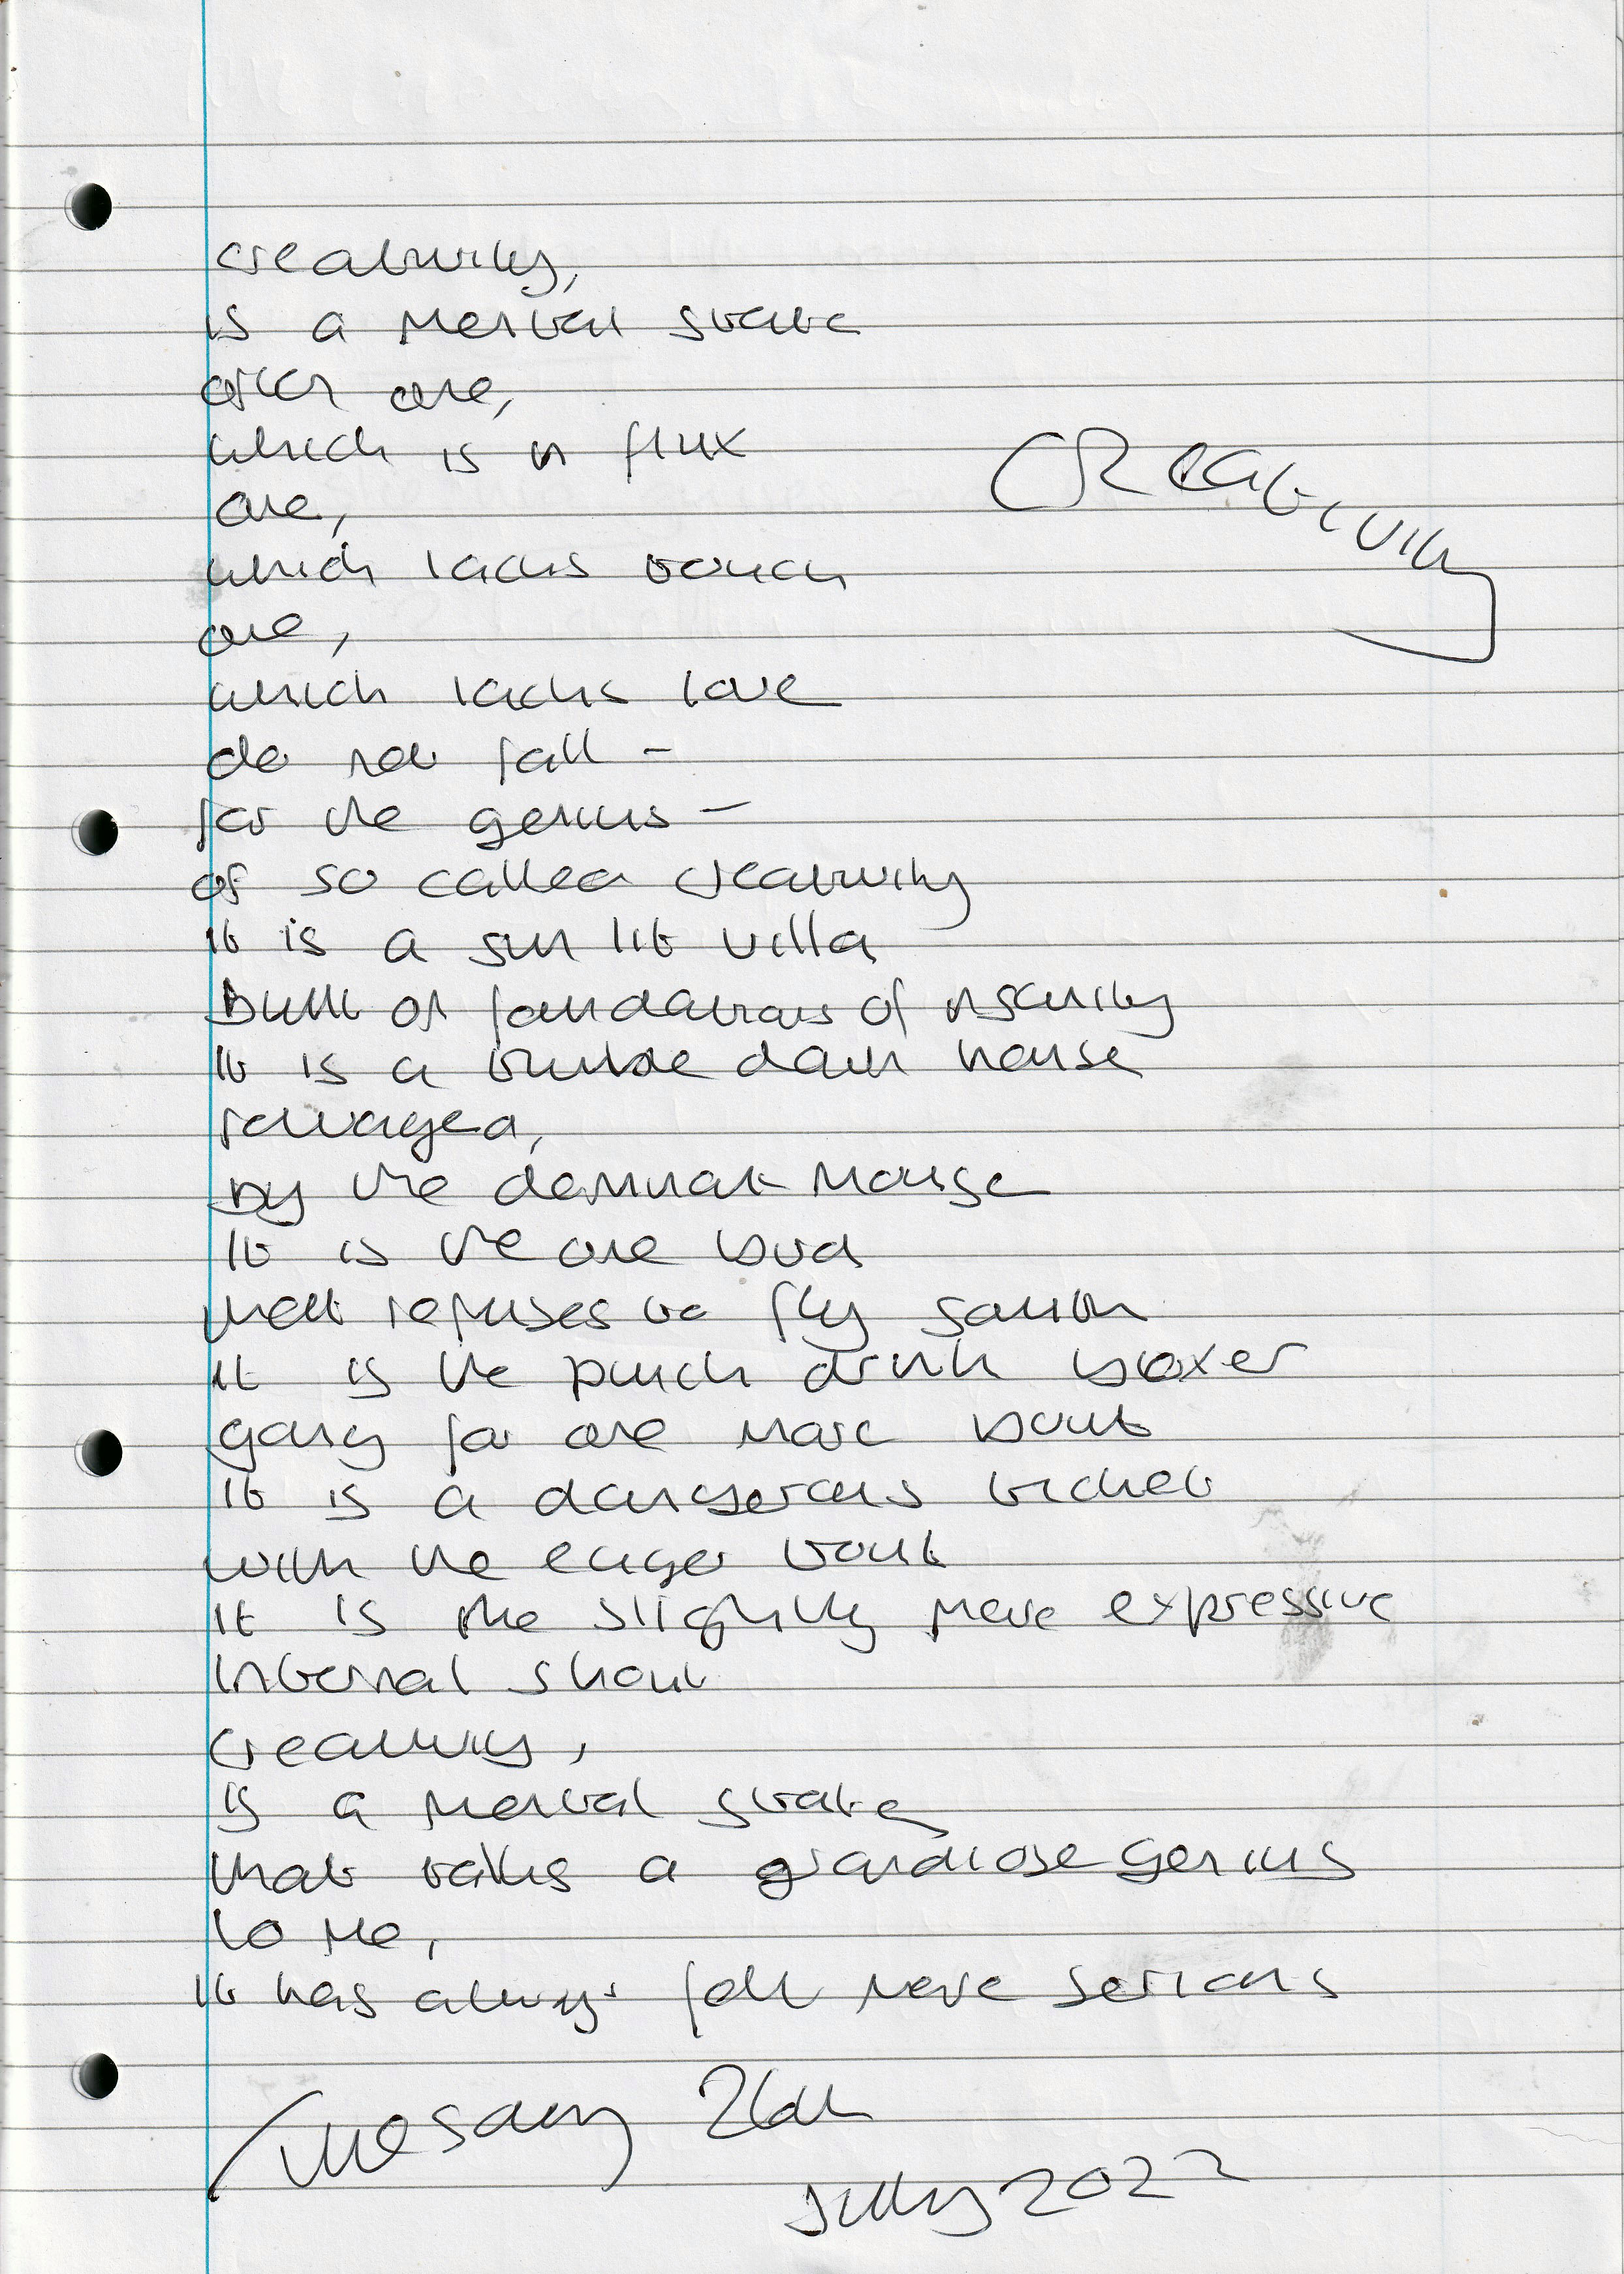 creativity,
is a mental state
often one,
which is in flux
CREATIVITY
one,
which lacks touch
one,
which lacks love
do not fall -
for the genius -
of so called creativity
it is a sun lit villa
Built on foundations of insanity
It is a tumble down house
ravaged,
by the dormant mouse
It is the one bird
that refuses to fly south
it is the punch drunk boxer
going for one more bout
It is a dangerous ticket
with the eager tout
It is the slightly more expressive
internal shout
creativity,
is a mental state
that talks a grandiose genius
to me,
It has always felt more serious
Tuesday 26th
July 2022